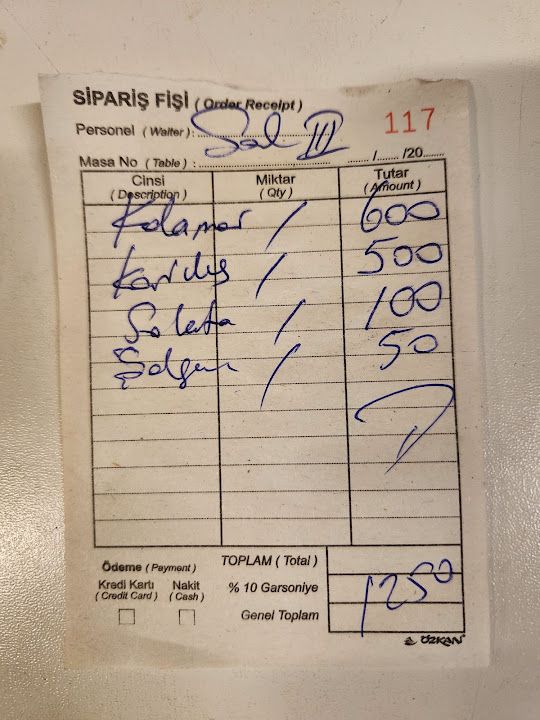 SİPARİŞ FİŞİ ( Order Receipt )
117
Personel ( Waiter ) : Sal III
Masa No ( Table ) : ....../....../20......
Cinsi ( Description ) Miktar ( Qty ) Tutar ( Amount )
Kalamar / 600
Karides / 500
Salata / 100
Şalgam / 50
TOPLAM ( Total )
Ödeme ( Payment )
Kredi Kartı ( Credit Card ) Nakit ( Cash )
% 10 Garsoniye
1250
Genel Toplam
ÖZKAN